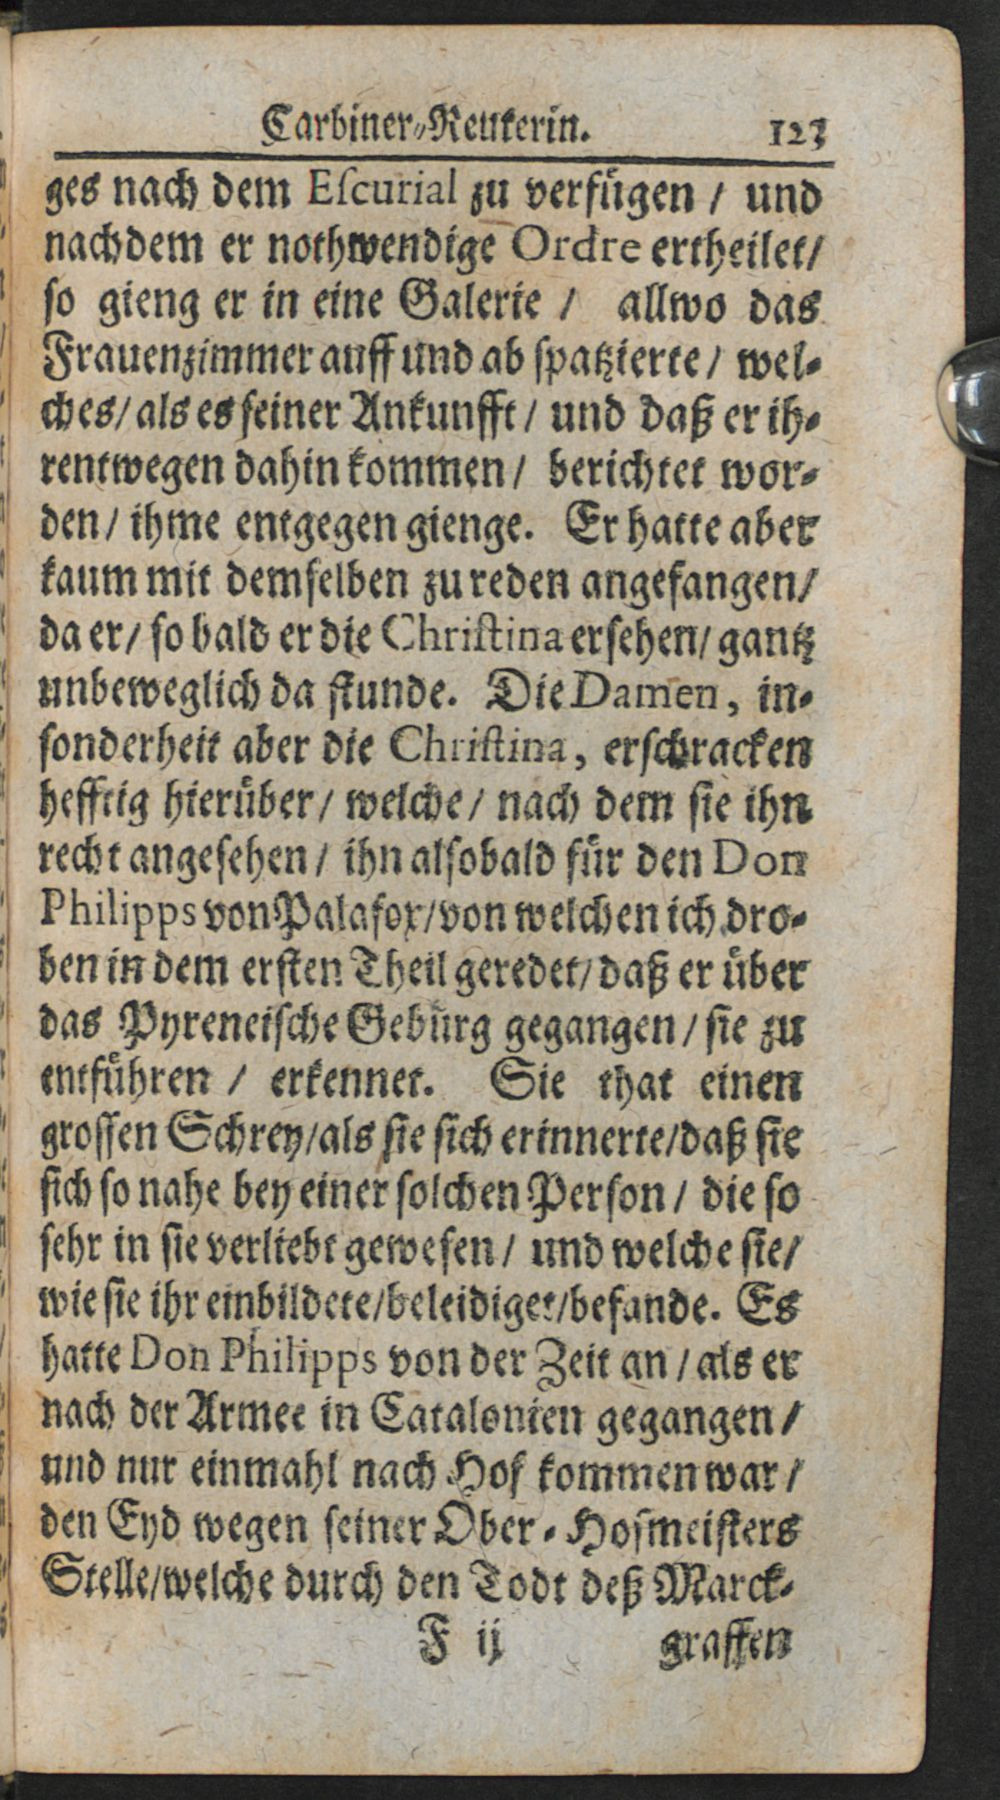 Carbiner-Reuterin. 123
ges nach dem Eſcurial zu verfügen / und
nachdem er nothwendige Ordre ertheilet/
ſo gieng er in eine Galerie / allwo das
Frauenzimmer auff und ab ſpatzierte / wel-
ches/ als es ſeiner Ankunfft / und daß er ih-
rentwegen dahin kommen / berichtet wor-
den / ihme entgegen gienge. Er hatte aber
kaum mit demſelben zu reden angefangen/
da er/ ſo bald er die Chriſtina erſehen/ gantz
unbeweglich da ſtunde. Die Damen, in-
ſonderheit aber die Chriſtina, erſchracken
hefftig hierüber/ welche / nach dem ſie ihn
recht angeſehen / ihn alſobald für den Don
Philipps von Palafox/von welchen ich dro-
ben in dem erſten Theil geredet/ daß er über
das Pyreneiſche Gebürg gegangen / ſie zu
entführen / erkennet. Sie that einen
groſſen Schrey/als ſie ſich erinnerte/daß ſie
ſich ſo nahe bey einer ſolchen Perſon / die ſo
ſehr in ſie verliebt geweſen / und welche ſie/
wie ſie ihr einbildete/beleidiget/befande. Es
hatte Don Philipps von der Zeit an / als er
nach der Armee in Catalonien gegangen /
und nur einmahl nach Hof kommen war /
den Eyd wegen ſeiner Ober-Hofmeiſters
Stelle/welche durch den Todt deß Marck-
F ij graffen